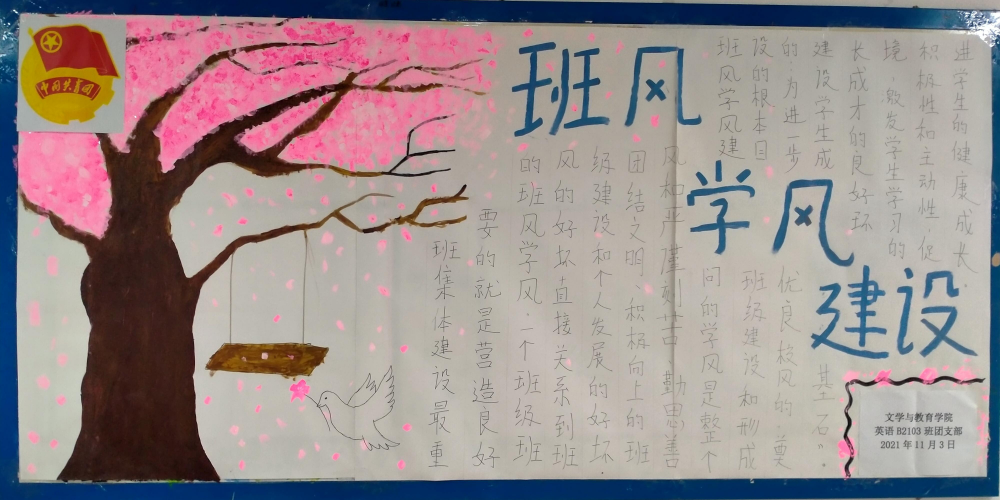 中国共青团
班风
学风
建设
班集体建设最重
要的就是营造良好
的班风学风.一个班级班
风的好坏直接关系到班
级建设和个人发展的好坏
团结文明、积极向上的班
风和严谨刻苦 勤思善
问的学风是整个
班级建设和形成
优良校风的“奠
基石”.
班风学风建
设的根本目
的:为进一步
建设学生成
长成才的良好环
境,激发学生学习的
积极性和主动性,促
进学生的健康成长.
文学与教育学院
英语B2103班团支部
2021年11月3日